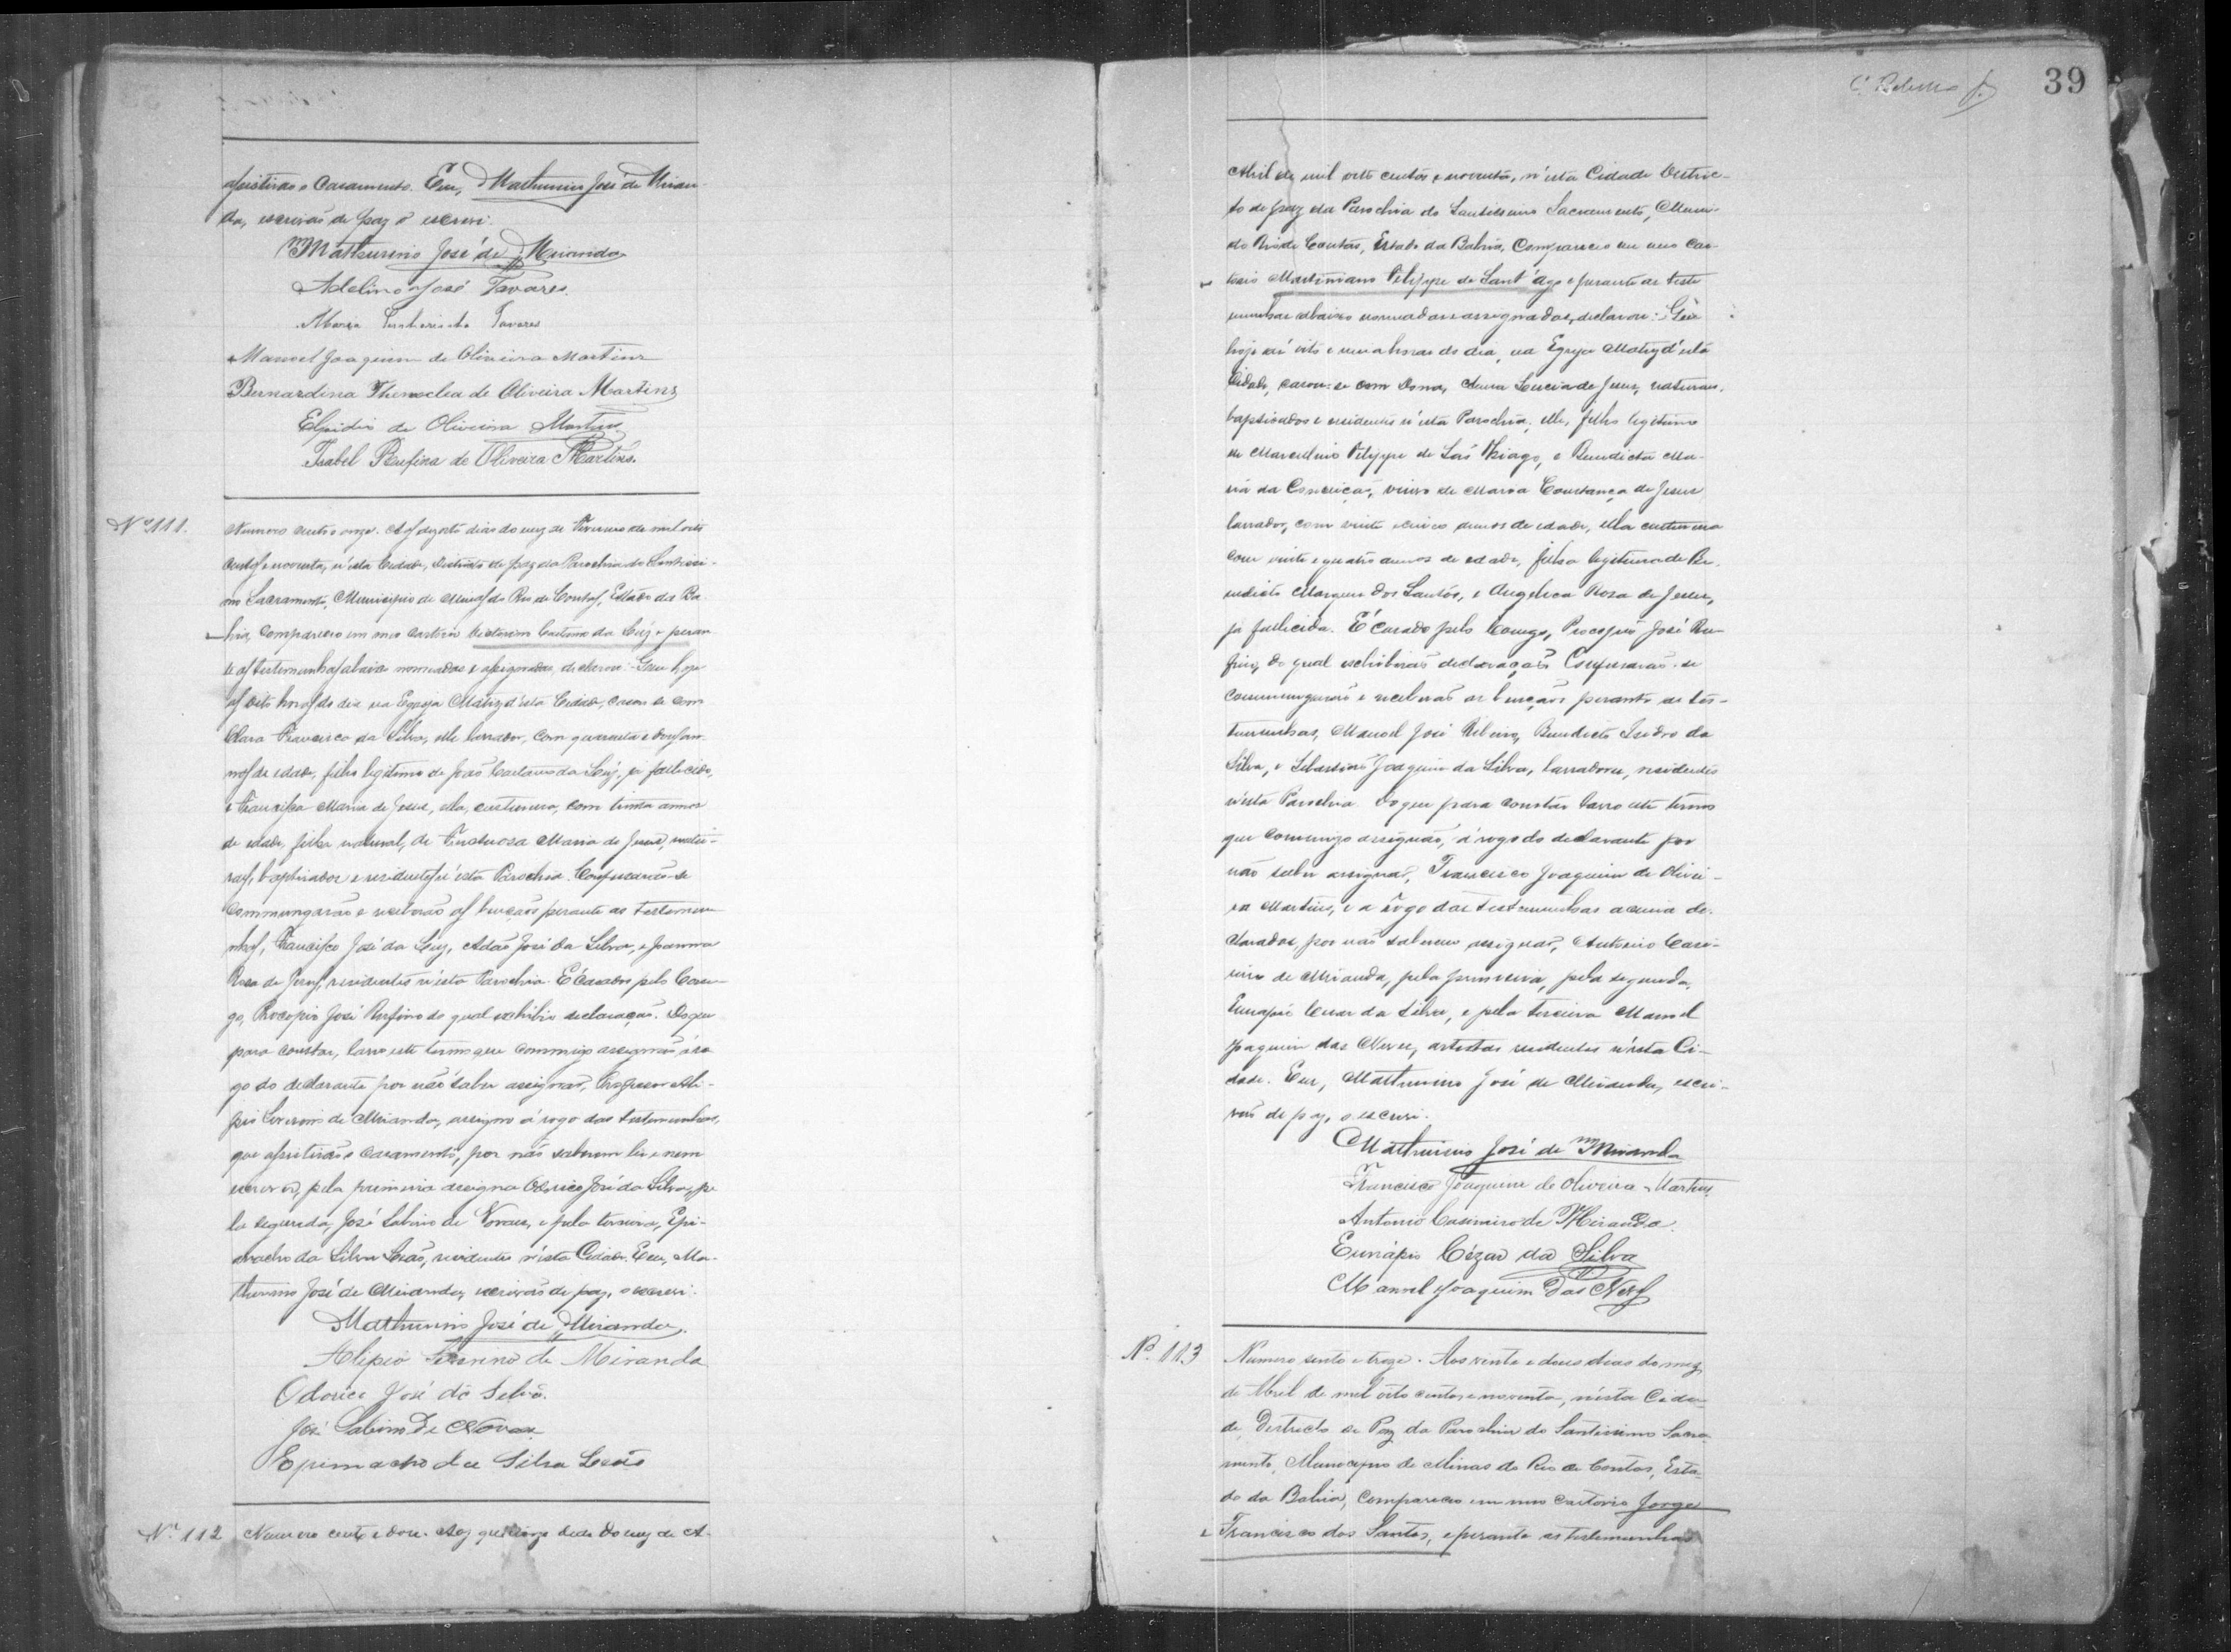 assistirão o Casamento. Eu, Mathurino José de Miran-
da, escrivão de paz o escrevi.
Mathurino José de Miranda
Adelino José Tavares.
Tavares
Manoel Joaquim de Oliveira Martins
Bernardina Themoclea de Oliveira Martins
Elpidio de Oliveira Martins
Isabel Rufina de Oliveira Martins.
Nº 111.
Numero cento e onze. Aos dezoito dias do mez de Fevereiro de mil oito
centos e noventa, n'esta Cidade, Districto de paz da Parochia do Santissi-
mo Sacramento, Municipio de Minas do Rio de Contas, Estado da Ba-
hia, compareceo em meo Cartorio Caetano da Luz e peran-
te as testemunhas abaixo nomeadas e assignadas, declarou: Que hoje
as oito horas do dia na Egreja Matriz d'esta Cidade, casou se com
Clara Francisca da Silva, elle lavrador, com quarenta e dous an-
nos de idade, filho legitimo de João Caetano da Luz, já fallecido,
e Francisca Maria de Jesus, ella, custureira, com trinta annos
de idade, filha natural, de Fructuosa Maria de Jesus, natu-
raes, baptisados e residentes n'esta Parochia. Confessarão-se
Commungarão e receberão as bençãos perante as testemu-
nhas, Francisco José da Luz, Adão José da Silva, e Joanna
Rosa de Jesus, residentes n'esta Parochia. É Casado pelo Cone-
go, Procopio José Rufino do qual exhibio declaração. Do que
para constar, lavro este termo que commigo assignão á ro-
go do declarante por não saber assignar, Professor Ali-
pio Severino de Miranda, assigno á rogo das testemunhas,
que assistirão o Casamento, por não saberem ler e nem
escrever, pela primeira assigna Odorico José da Silva, pe-
la segunda, José Sabino de Novaes, e pela terceira, Epi-
macho da Silva Leão, residentes n'esta Cidade. Eu, Ma-
thurino José de Miranda, escrivão de paz, o escrevi.
Mathurino José de Miranda.
Alipio Severino de Miranda
Odorico José da Silva.
José Sabino de Novaes
Epimacho da Silva Leão
Nº 112 Numero cento e doze. Aos quinze dias do mez de A-
39
Abril de mil oito centos e noventa, n'esta Cidade Distric-
to de paz da Parochia do Santissimo Sacramento, Minas
do Rio de Contas, Estado da Bahia, Compareceo em meo Car-
torio Martiniano Felippe de Sant'Ago e perante as teste
munhas abaixo nomeadas e assignadas, declarou: Que
hoje as oito e meia horas do dia, na Egreja Matriz d'esta
Cidade, casou-se com Dona, Anna Lucia de Jesus, naturaes,
baptisados e residentes n'esta Parochia, elle, filho legitimo
de Marcellino Felippe de São Thiago, e Benedicta Ma-
ria da Conceição, viuvo de Maria Constança de Jesus
lavrador, com vinte e cinco annos de edade, ella custureira
com vinte e quatro annos de edade, filha legitima de Be-
nedicto Marques dos Santos, e Angelica Rosa de Jesus,
já fallecida. É Casado pelo Conego, Procopio José Ru-
fino, do qual exhibirão declaração. Confessarão-se
commungarão e receberão as bençãos perante as tes-
temunhas, Manoel José Ribeiro, Benedicto Isidro da
Silva, e Sebastião Joaquim da Silva, lavradores, residentes
n'esta Parochia. Do que para constar lavro este termo
que commigo assignão, á rogo do declarante por
não saber assignar, Francisco Joaquim de Olivei-
ra Martins, e a rogo das testemunhas acima de-
claradas, por não saberem assignar, Antonio Casi-
miro de Miranda, pela primeira, pela segunda,
Eunapio Cesar da Silva, e pela terceira Manoel
Joaquim das Neves, artistas residentes n'esta Ci-
dade. Eu, Mathurino José de Miranda, escri-
vão de paz, o escrevi.
Mathurino José de Miranda
Francisco Joaquim de Oliveira Martins
Antonio Casimiro de Miranda.
Eunápio Cézar da Silva
Manoel Joaquim das Neves
Nº 113 Numero sento e treze. Aos vinte e dous dias do mez
de Abril de mil oito centos e noventa, n'esta Cida-
de, Districto de Paz da Parochia do Santissimo Sacra-
mento, Municipio de Minas do Rio de Contas, Esta-
do da Bahia, compareceo em meu Cartorio Jorge
Francisco dos Santos, e perante as testemunhas